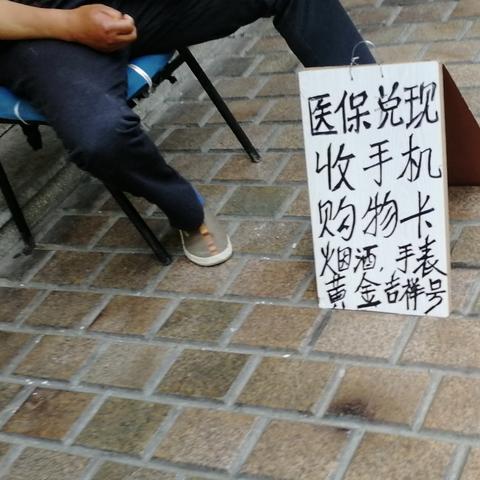 医保兑现
收手机
购物卡
烟酒.手表
黄金吉祥号